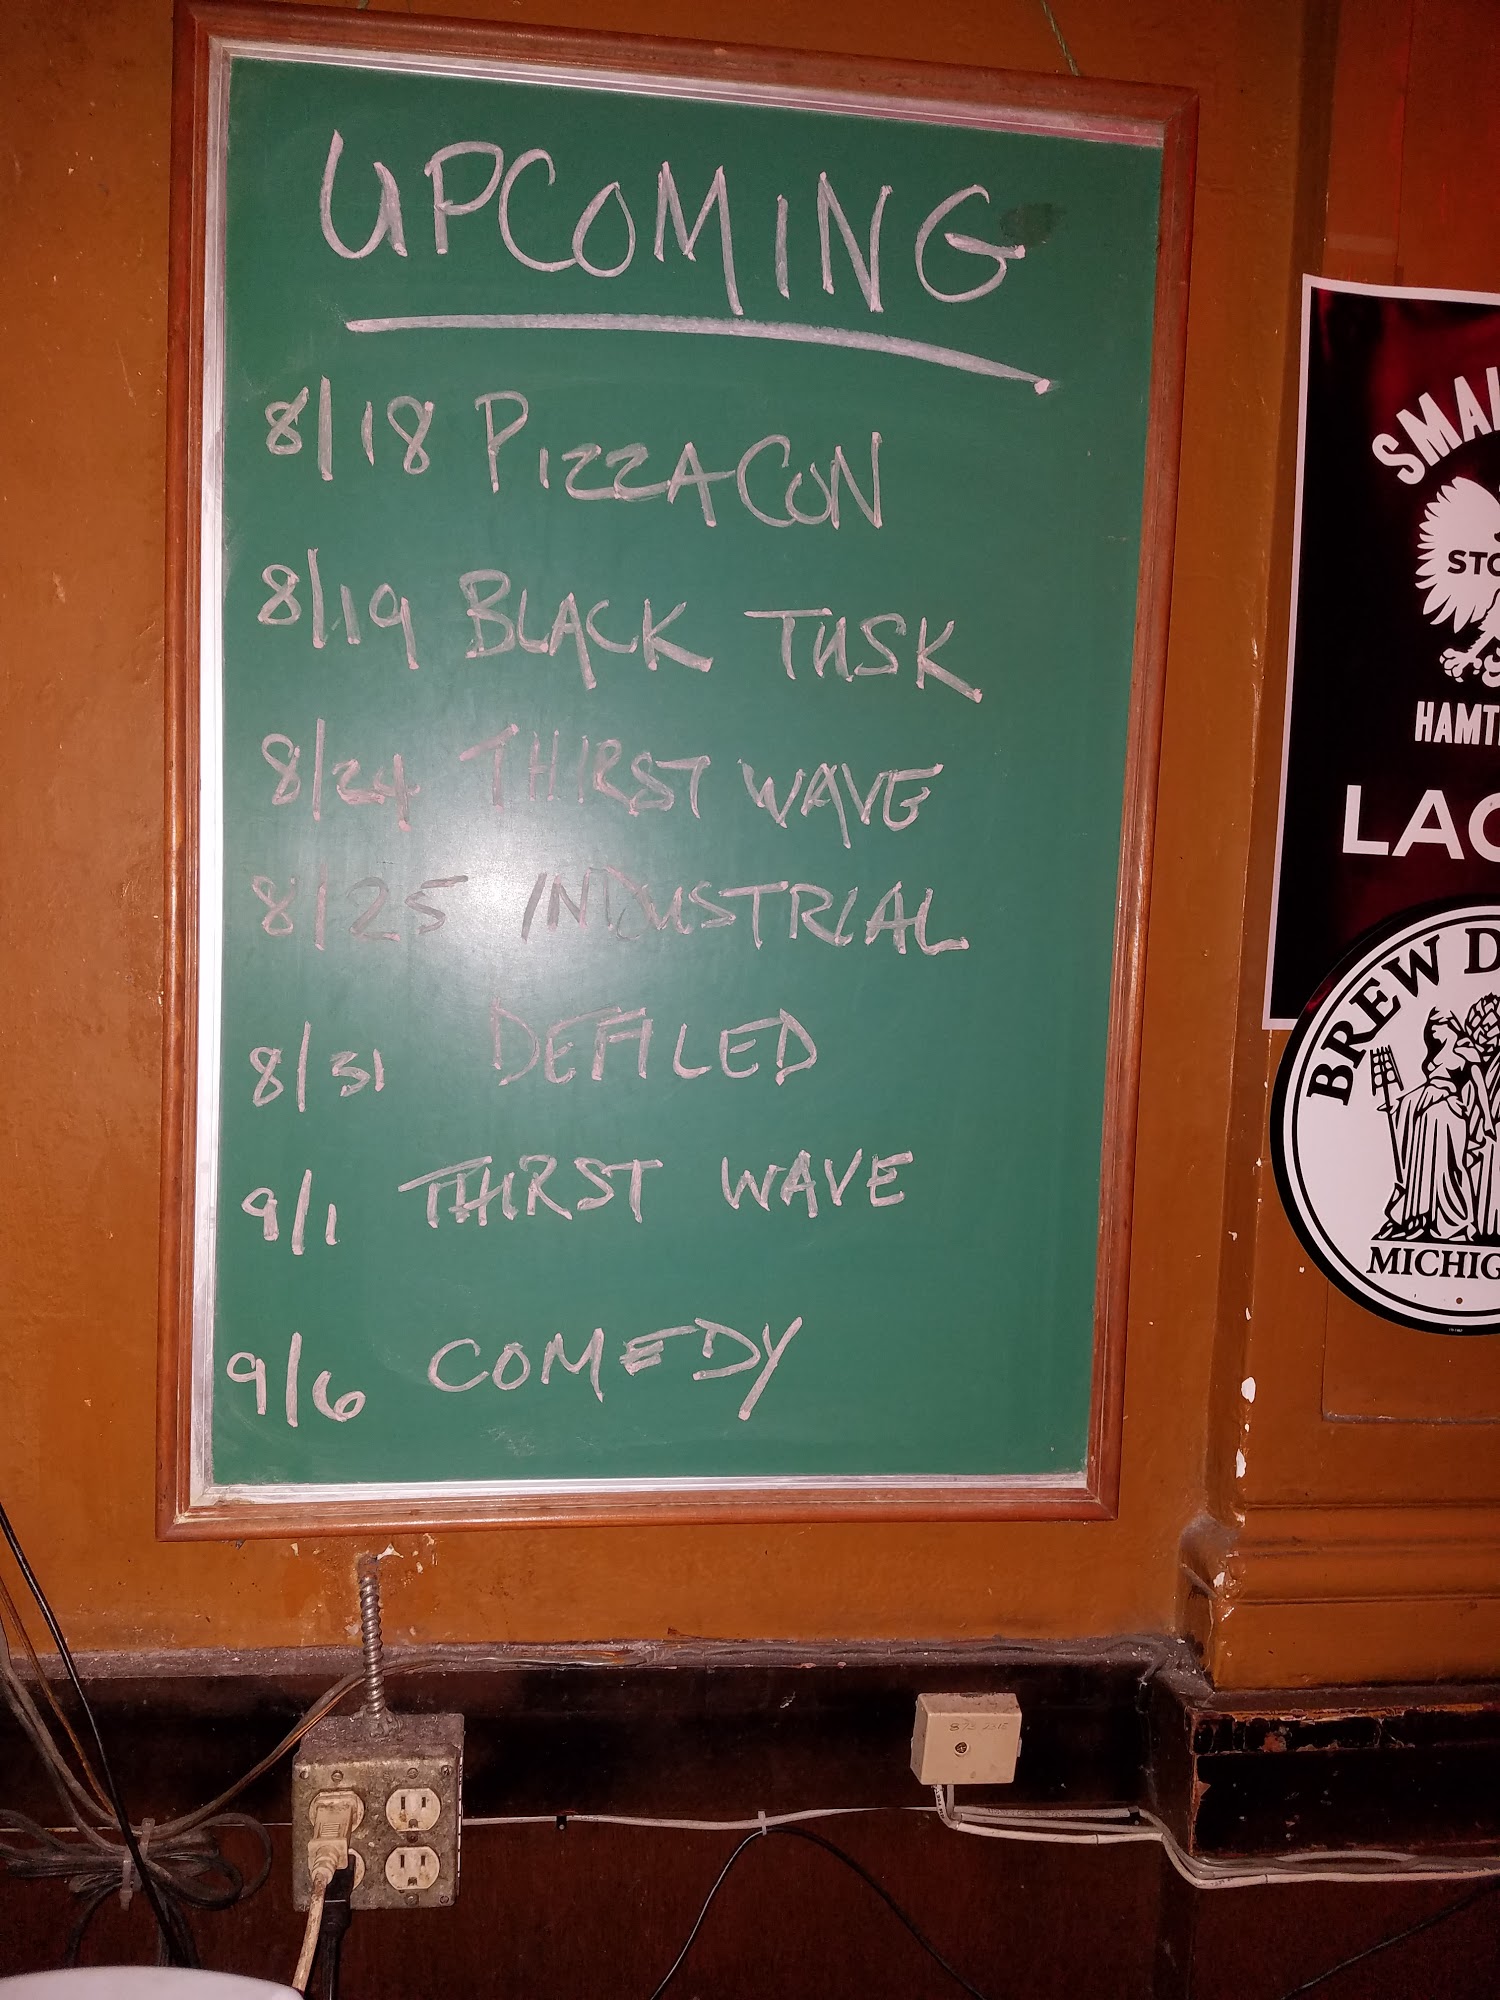 UPCOMING
8/18 PIZZACON
8/19 BLACK TUSK
8/24 THIRST WAVE
8/25 INDUSTRIAL
8/31 DEFILED
9/1 THIRST WAVE
9/6 COMEDY
SMAL
STO
HAMT
LAG
BREW D
MICHIG